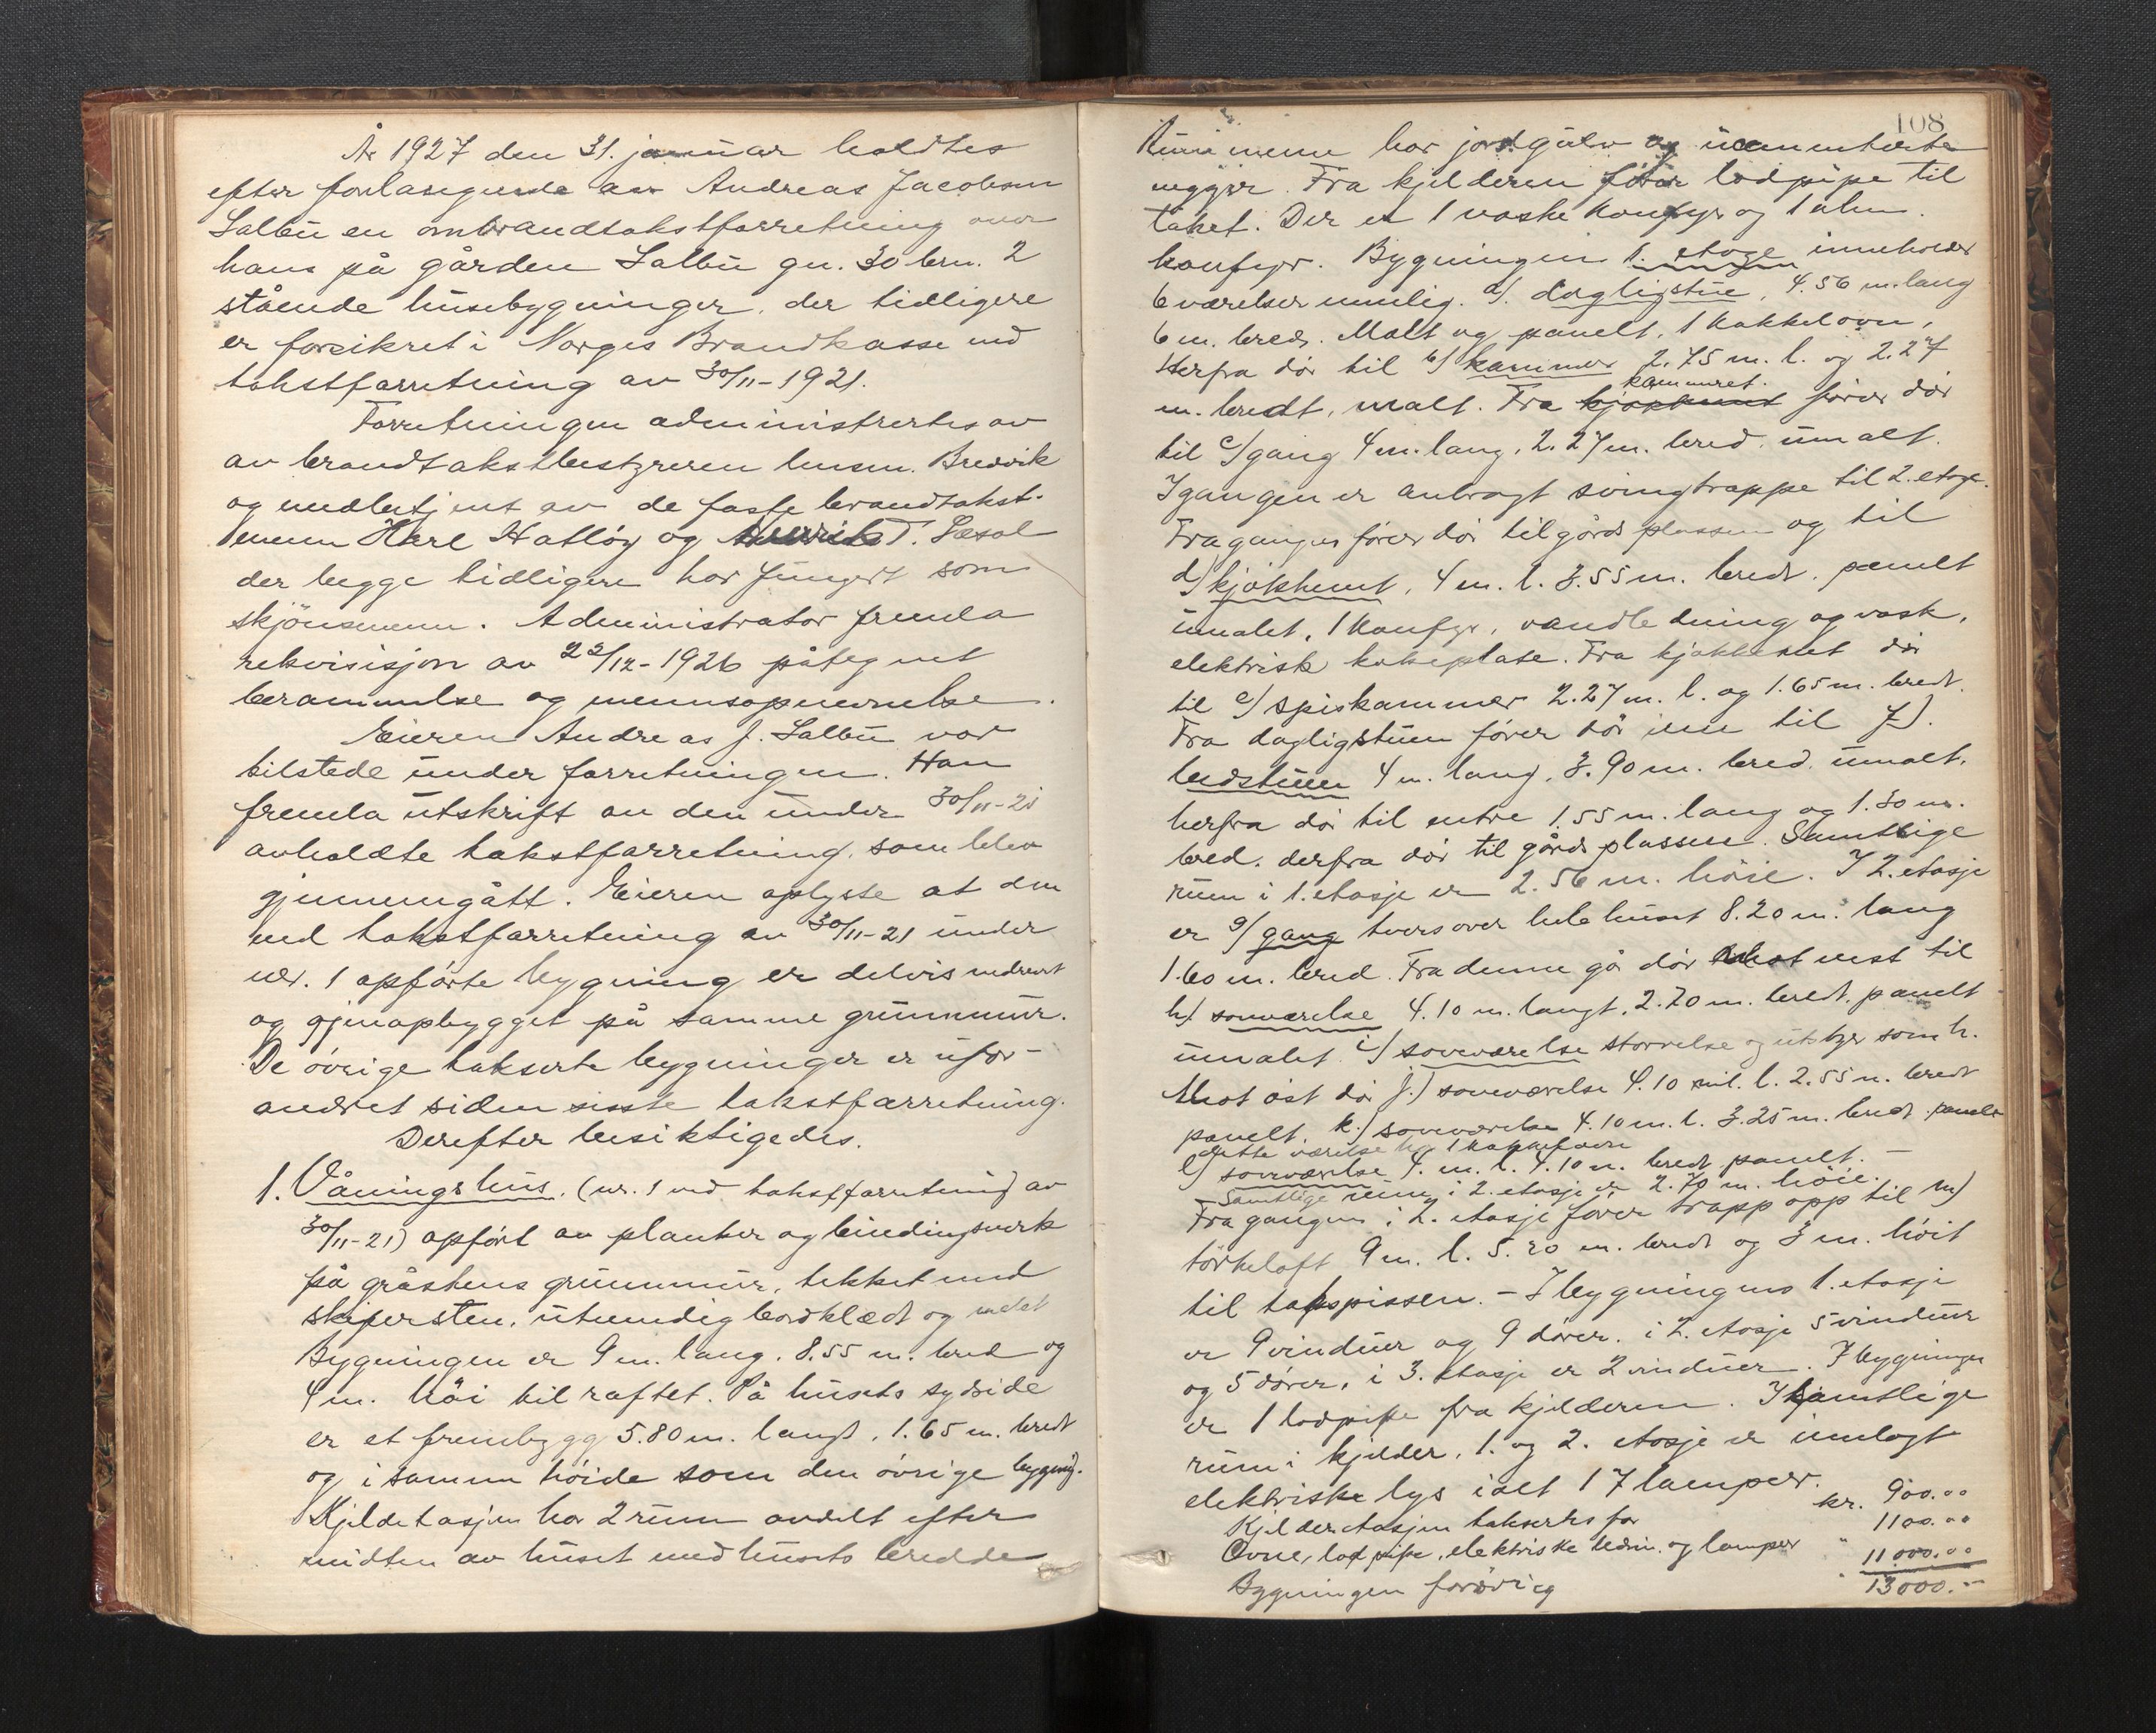 År 1927 den 31. januar holdtes
efter forlangende av Andreas Jacobsen
Salbu en ombrandtakstforretning over
hans på gården Salbu gn. 30 brn. 2
stående husebygninger, der tidligere
er forsikret i Norges Brandkasse ved
takstforretning av 30/11-1921.
Forretningen administrertes av
av brandtakstbestyreren lensm. Bredvik
og medbetjent av de faste brandtakst-
menn Karl Hatløy og T.
der begge tidligere har fungert som
skjönsmenn. Administrator fremla
rekvisisjon av 22/12-1926 påtegnet
berammelse og mennsopnevnelse.
Eieren Andreas J. Salbu var
tilstede under forretningen. Han
fremla utskrift av den under 30/11-21
avholdte takstforretning, som blev
gjennemgått. Eieren oplyste at den
ved takstforretning av 30/11-21 under
nr. 1 opförte bygning er delvis nedrevet
og gjenopbygget på samme grunnmur.
De övrige takserte bygninger er ufor-
andret siden sisste takstforretning.
Derefter besiktigedes.
1. Våningshus. (nr. 1 ved takstforretning av
30/11-21) opfört av planker og bindingsverk
på gråstens grunnmur, tekket med
skifersten, utvendig bordklædt og malet
Bygningen er 9 m. lang. 8.55 m. bred og
4 m. höi til raftet. På husets sydside
er et frembygg 5.80 m. langt, 1.65 m. bredt
og i samme höide som den övrige bygnig.
Kjeldetasjen har 2 rum avdelt efter
midten av huset med husets bredde
108
Rummene har jordgulv og ucementerte
vegger. Fra kjelderen förer lodpipe til
taket. Der er 1 vaske komfyr og 1 alm.
komfyr. Bygningens 1. etage inneholder
6 værelser nemlig. a). dagligstue, 4.56 m. lang
6 m. bred. Malt og panelt, 1 kakkelovn,
Herfra dör til b) kammer 2.75 m. l. og 2.27
m. bredt, malt. Fra kjøkkenet kammeret. förer dör
til c) gang 4 m. lang, 2.27 m. bred umalt.
I gangen er anbragt svingtrappe til 2. etage.
Fra gangen förer dör til gårdsplassen og til
d) kjökkenet, 4 m. l. 3.55 m. bredt. panelt
umalet, 1 komfyr, vandledning og vask,
elektrisk kokeplate. Fra kjøkkenet dör
til e) spiskammer 2.27 m. l. og 1.65 m. bredt.
Fra dagligstuen förer dör inn til f).
bedstuen 4 m. lang, 3.90 m. bred, umalt,
herfra dör til entre 1.55 m. lang og 1.30 m.
bred, derfra dör til gårdsplassen. Samtlige
rum i 1. etasje er 2.56 m. höie. I 2. etasje
er g) gang tversover hele huset 8.20 m. lang
1.60 m. bred. Fra denne gå dör mot vest til
h) soveværelse 4.10 m. langt, 2.70 m. bredt, panelt
umalet i) soveværelse størrelse og utstyr som h.
Mot öst dör j.) soveværelse 4.10 m. l. 2.55 m. bredt
panelt. k.) soveværelse 4.10 m. l. 3.25 m. bredt. panelt
dette værelse har 1 kakkelovn
l) soveværelse 4. m. l. 4.10 m. bredt panelt. —
Samtlige rum i 2. etasje er 2.70 m. höie.
Fra gangen i 2. etasje förer trapp opp til m)
törkeloft 9 m. l. 5.20 m. bredt og 3 m. höit
til takspissen. – I bygningens 1. etasje
er 9 vinduer og 9 dörer. i 2. etasje 5 vinduer
og 5 dörer, i 3. etasje er 2 vinduer. I bygningen
er 1 lodpipe fra kjelderen. I samtlige
rum i kjelder, 1. og 2. etasje er innlagt
elektriske lys ialt 17 lamper.
Kjelderetasjen takseres for kr. 900.00
Ovne, lodpipe, elektriske ledn. og lamper " 1100.00
Bygningen forövrig " 11000.00
13000.–